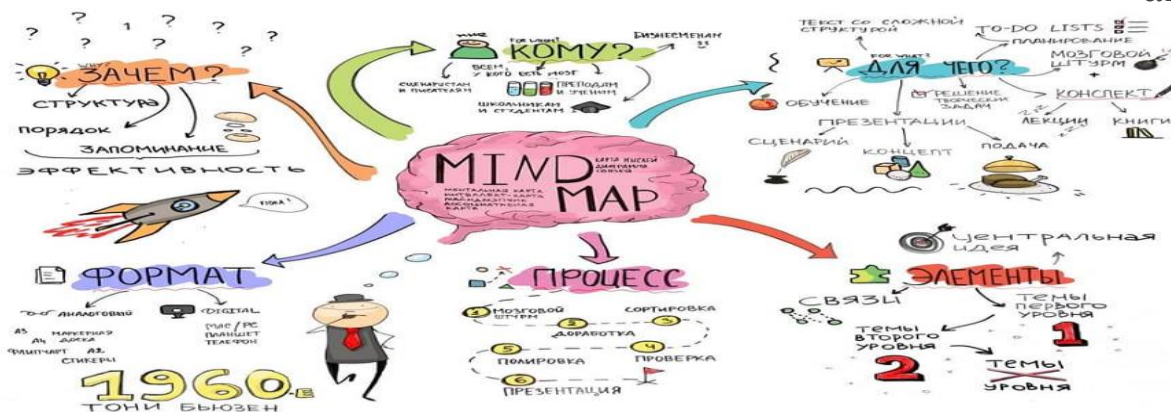 WHY?
ЗАЧЕМ?
СТРУКТУРА
ПОРЯДОК
ЗАПОМИНАНИЕ
ЭФФЕКТИВНОСТЬ
FOR WHOM?
КОМУ?
БИЗНЕСМЕНАМ
$$
ВСЕМ,
У КОГО ЕСТЬ МОЗГ
СЦЕНАРИСТАМ
И ПИСАТЕЛЯМ
ПРЕПОДАМ
И УЧЕНЫМ
ШКОЛЬНИКАМ
И СТУДЕНТАМ
ТЕКСТ СО СЛОЖНОЙ
СТРУКТУРОЙ
TO-DO LISTS
ПЛАНИРОВАНИЕ
FOR WHAT?
ДЛЯ ЧЕГО?
МОЗГОВОЙ
ШТУРМ
+
ОБУЧЕНИЕ
РЕШЕНИЕ
ТВОРЧЕСКИХ
ЗАДАЧ
КОНСПЕКТ
ПРЕЗЕНТАЦИИ
ЛЕКЦИИ
КНИГИ
СЦЕНАРИЙ
КОНЦЕПТ
ПОДАЧА
MIND
MAP
КАРТА МЫСЛЕЙ
ДИАГРАММА
СВЯЗЕЙ
МЕНТАЛЬНАЯ КАРТА
ИНТЕЛЛЕКТ-КАРТА
МАЙНДМЭППИНГ
АССОЦИАТИВНАЯ
КАРТА
ФОРМАТ
АНАЛОГОВЫЙ
DIGITAL
А3
МАРКЕРНАЯ
А4
ДОСКА
ФЛИПЧАРТ
А2
СТИКЕРЫ
MAC/PC
ПЛАНШЕТ
ТЕЛЕФОН
1960-Е
ТОНИ БЬЮЗЕН
ПРОЦЕСС
1 МОЗГОВОЙ
ШТУРМ
2
ДОРАБОТКА
СОРТИРОВКА
3
4
ПРОВЕРКА
5
ПОЛИРОВКА
6
ПРЕЗЕНТАЦИЯ
ЦЕНТРАЛЬНАЯ
ИДЕЯ
ЭЛЕМЕНТЫ
СВЯЗИ
ТЕМЫ
ПЕРВОГО
УРОВНЯ
1
ТЕМЫ
ВТОРОГО
УРОВНЯ
2
ТЕМЫ
УРОВНЯ